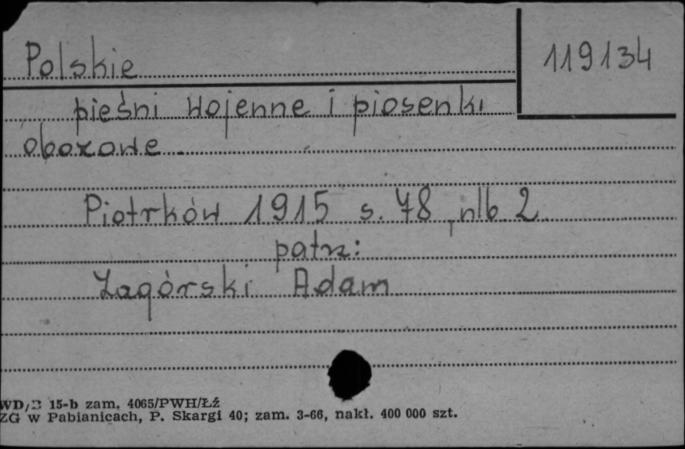 Polskie
119134
pieśni wojenne i piosenki
obozowe
Piotrków 1915 s. 78, nlb 2
patrz:
Zagórski Adam
WD/B 15-b zam. 4065/PWH/Łź
ZG w Pabianicach, P. Skargi 40; zam. 3-66, nakł. 400 000 szt.